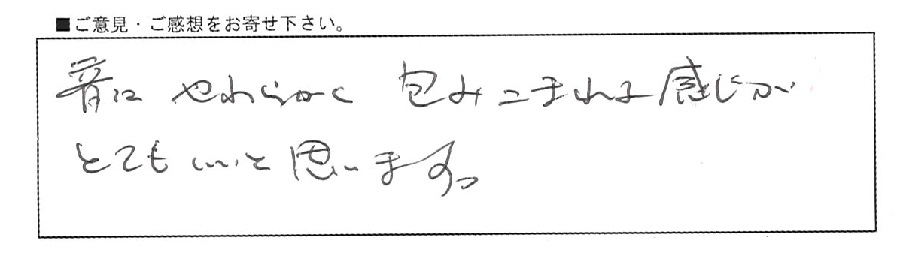 ■ご意見・ご感想をお寄せ下さい。
音に やわらかく 包みこまれる感じが
とてもいいと思います。